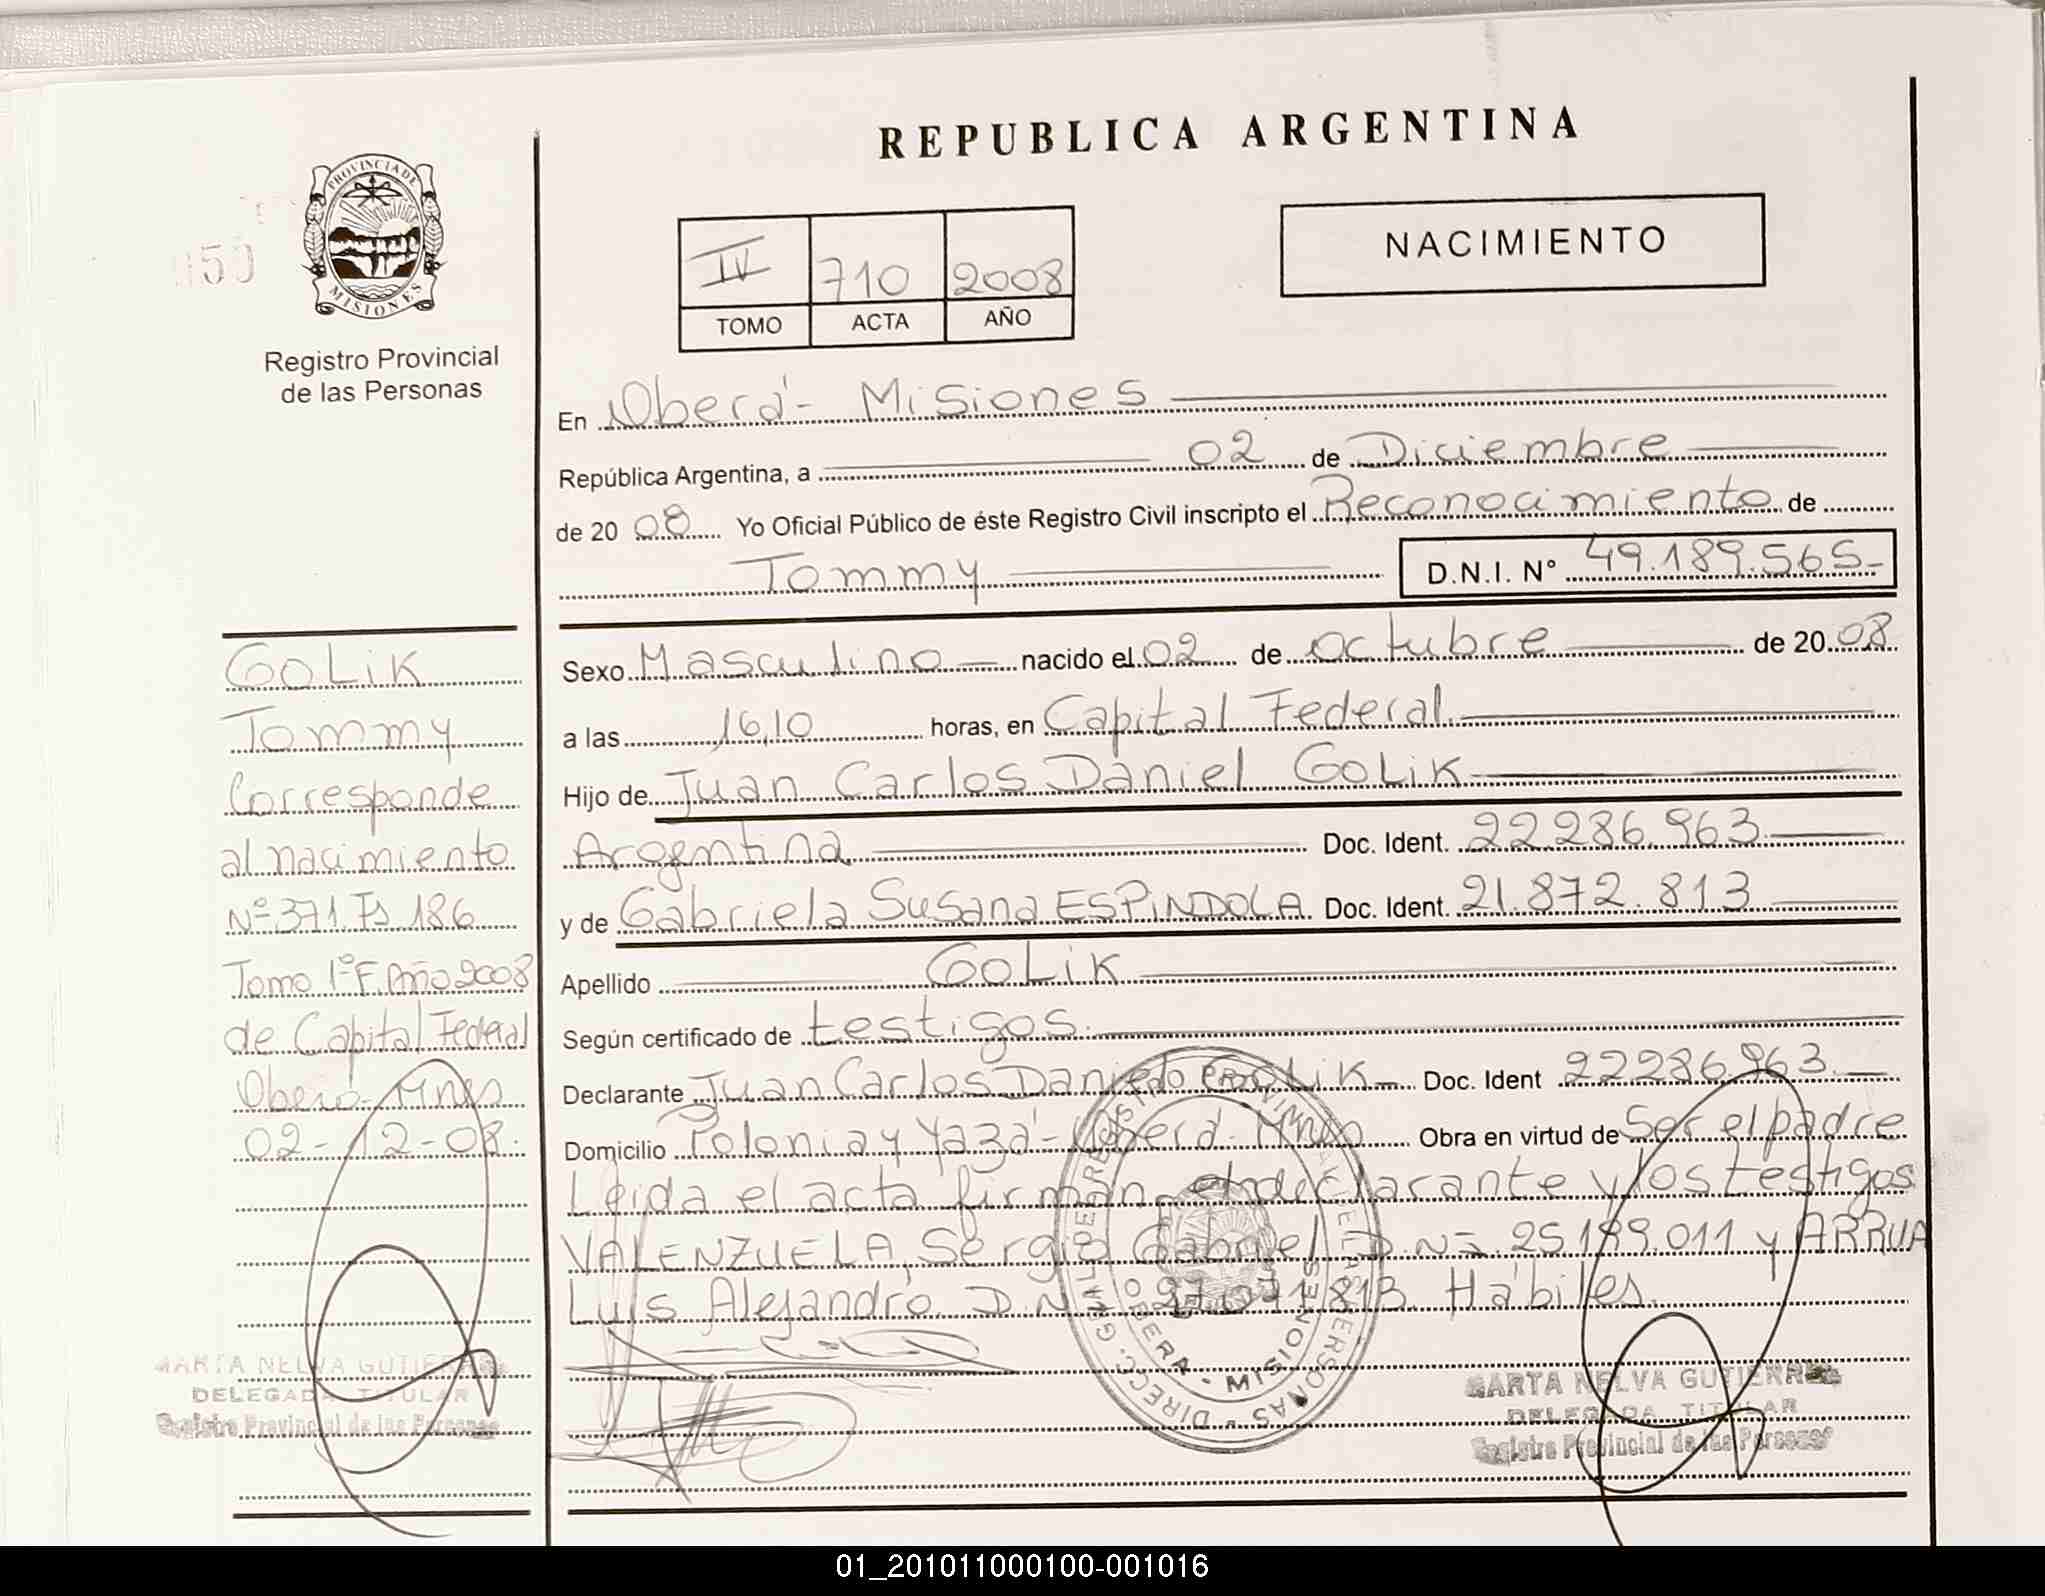 REPUBLICA ARGENTINA
PROVINCIA DE
MISIONES
Registro Provincial
de las Personas
IV 710 2008
TOMO ACTA AÑO
NACIMIENTO
En Oberá - Misiones
República Argentina, a 02 de Diciembre
de 2008 Yo Oficial Público de éste Registro Civil inscripto el Reconocimiento de
Tommy D.N.I. Nº 49.189.565-
Sexo Masculino nacido el 02 de octubre de 2008
a las 16,10 horas, en Capital Federal.
Hijo de Juan Carlos Daniel GOLiK
Argentina Doc. Ident. 22.286.963
y de Gabriela Susana ESPiNDOLA Doc. Ident. 21.872.813
Apellido GOLiK
Según certificado de testigos.
Declarante Juan Carlos Daniel GOLiK Doc. Ident 22286.963.
Domicilio Polonia y Yazá - Oberá - Mnes Obra en virtud de Ser el padre
Leida el acta firman el declarante y los testigos
VALENZUELA, Sergio Gabriel D.Nº 25.189.011 y ARRUA
Luis Alejandro D.Nº 27.071.813 Hábiles.
GOLiK
Tommy
Corresponde
al nacimiento
Nº 371. Fs 186
Tomo 1º F. Año 2008
de Capital Federal
Oberá - Mnes
02-12-08.
MARTA NELVA GUTIERREZ
DELEGADA TITULAR
Registro Provincial de las Personas
MARTA NELVA GUTIERREZ
DELEGADA TITULAR
Registro Provincial de las Personas
OBERA - MISIONES
01_201011000100-001016